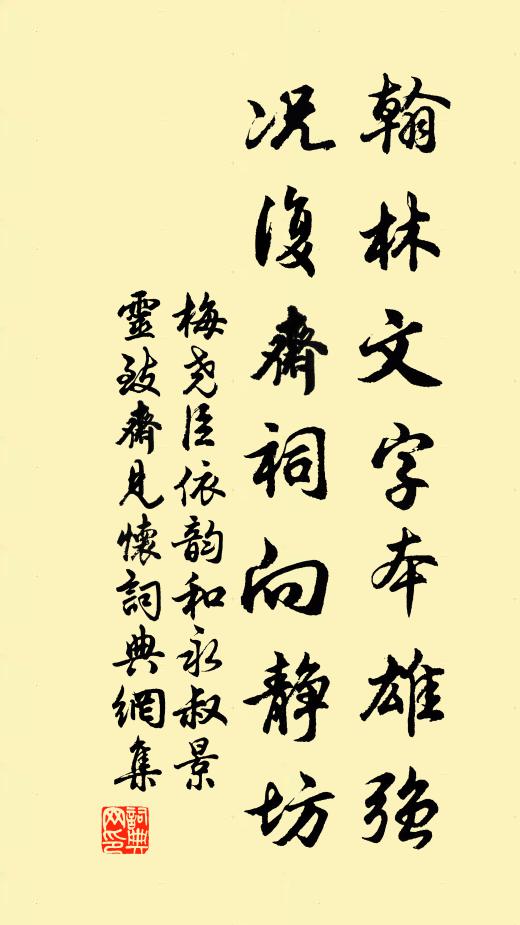 翰林文字本雄强
况復齋祠向静坊
梅尧臣依韵和永叔景
靈致齋見懷詞典網集
詞典
网印